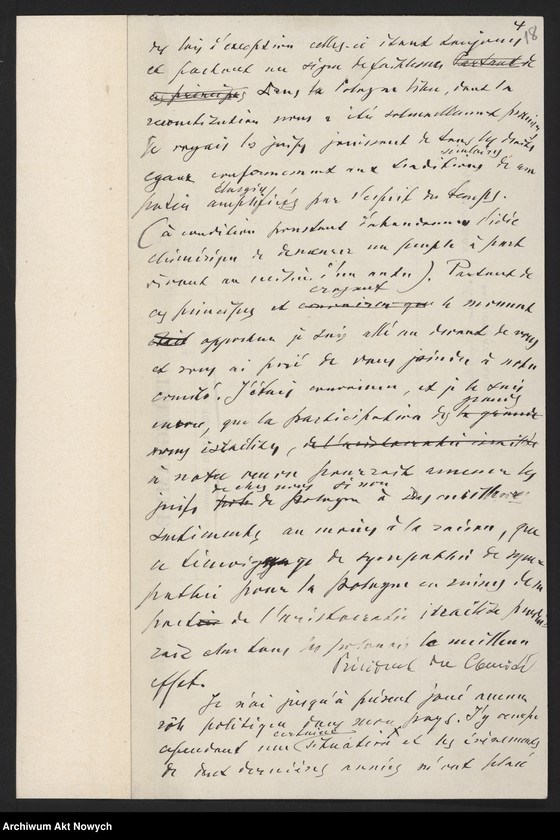 4
18
des lois d'exception celles-ci étant toujours
et partout un signe de faiblesse. Partant de
ces principes Dans la Pologne libre, dont la
reconstitution nous a été solennellement promise
Je voyais les juifs jouissant de tous les droits
séculaires
égaux conformément aux traditions de ma
élargies
patrie amplifiées par l'esprit du temps.
(à condition pourtant d'abandonner l'idée
chimérique de demeurer un peuple à part
vivant au milieu d'un autre). Partant de
croyant
ces principes et le moment
était opportun je suis allé au devant de vous
et vous ai prié de vous joindre à notre
comité. J'étais convaincu, et je le suis
grands
encore, que la participation des la grande
noms israélites, de l'aristocratie israélite
à notre oeuvre pourrait amener les
de chez nous si non
juifs de Pologne à des meilleurs
sentiments au moins à la raison, que
ce témoignage de sympathie de sym-
pathie pour la Pologne en ruines de la
part de l'aristocratie israélite produi-
rait chez tous les polonais le meilleur
Président du Comité
effet.
Je n'ai jusqu'à présent joué aucun
rôle politique dans mon pays. J'y occupe
certaine
cependant une situation et les évènements
de deux dernières années m'ont placé
Archiwum Akt Nowych